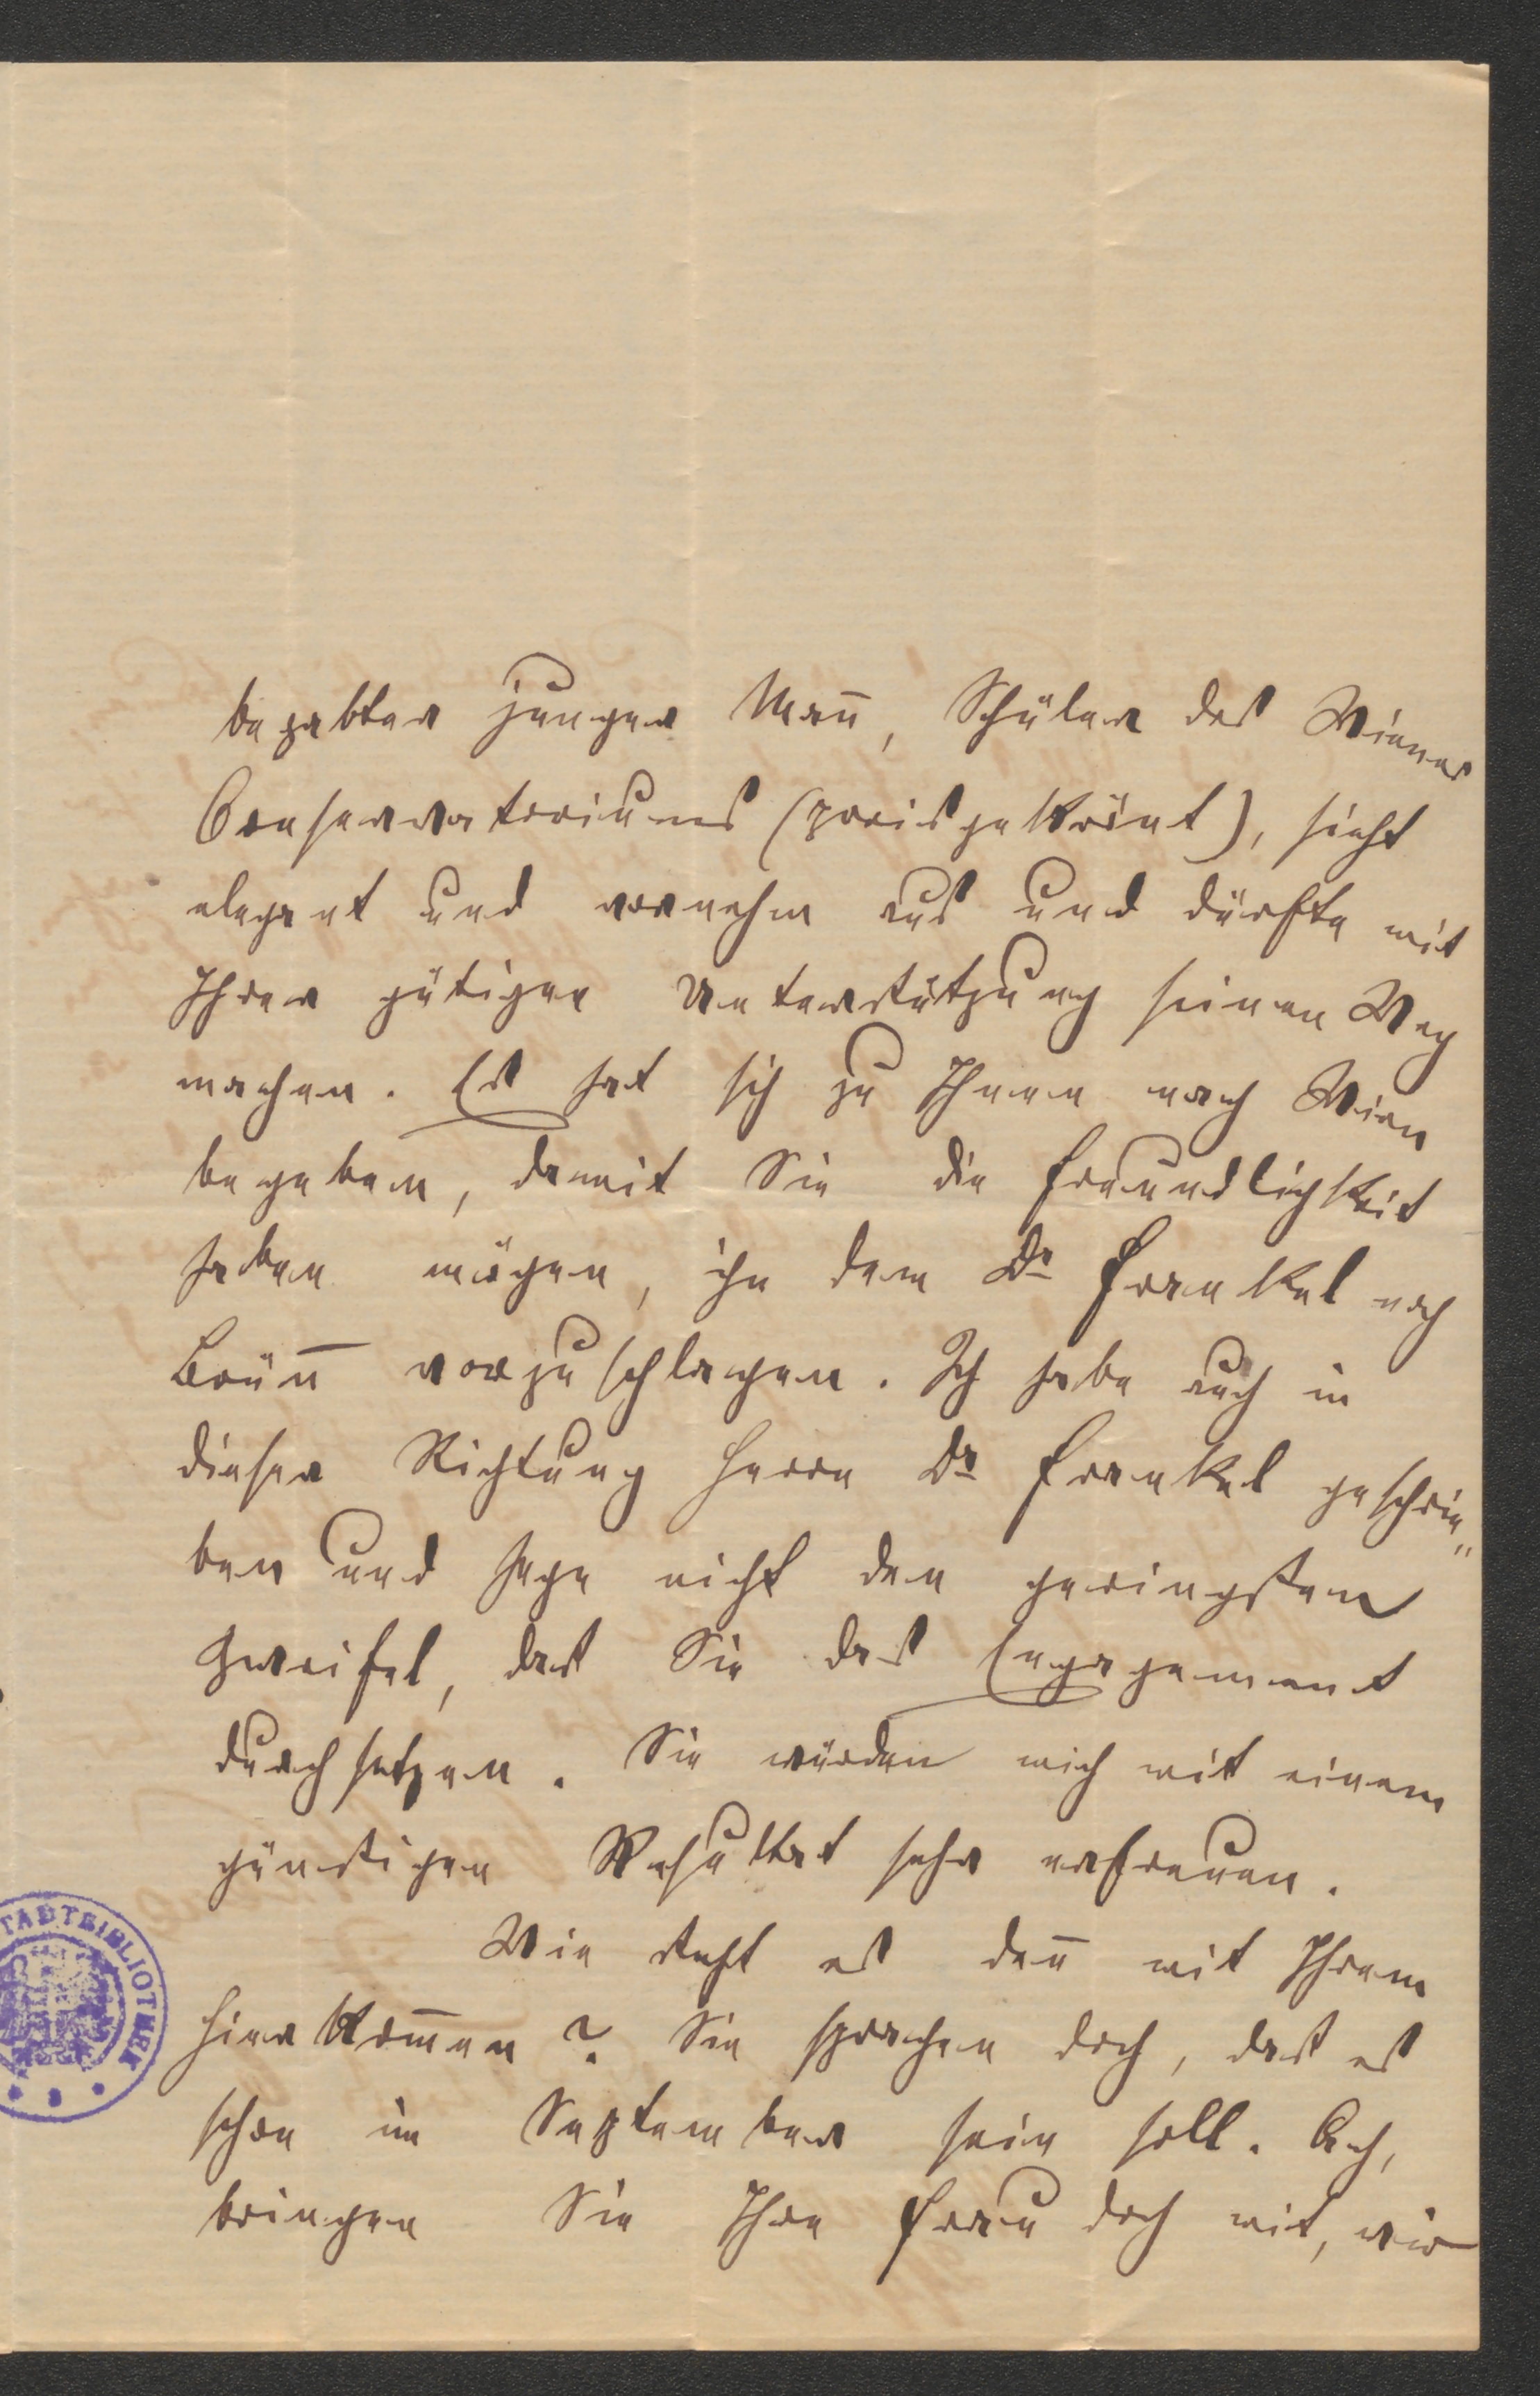 begabter junger Man̄, Schüler des Wiener
Conservatoriums (preisgekrönt), sieht
elegant und vornehm aus und dürfte mit
Ihrer gütigen Unterstützung seinen Weg
machen. Er hat sich zu Ihnen nach Wien
begeben, damit Sie die Freundlichkeit
haben mögen, ihn dem Dr Frankel nach
Brün̄ vorzuschlagen. Ich habe auch in
dieser Richtung Herrn Dr Frankel geschrie„
ben und hege nicht den geringsten
Zweifel, daß Sie das Engagement
durchsetzen. Sie würden mich mit einem
günstigen Resultat sehr erfreuen.
Wie steht es den̄ mit Ihrem
Hierkom̄en? Sie sprachen doch, daß es
schon im September sein soll. Ach,
bringen Sie Ihre Frau doch mit, wir
STADTBIBLIOTHEK